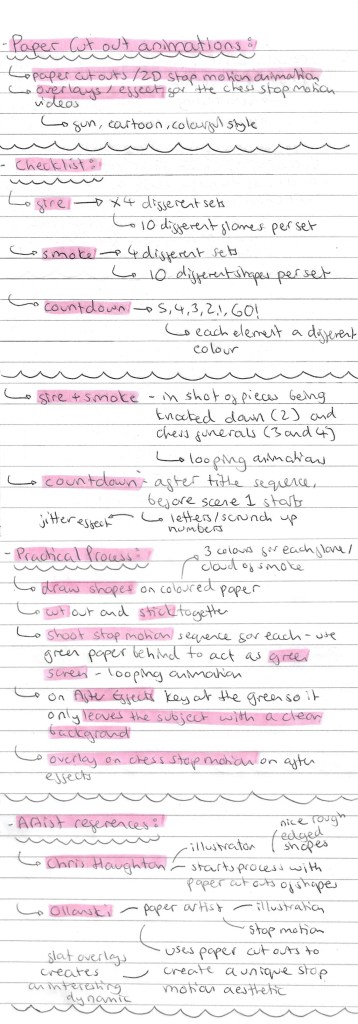 - Paper Cut out animations:
paper cut outs / 2D stop motion animation
overlays / effect for the chess stop motion
videos
fun, cartoon, colourful style
- Checklist:
fire → x4 different sets
10 different flames per set
smoke → 4 different sets
10 different shapes per set
countdown → 5, 4, 3, 2, 1, GO!
each element a different
colour
fire + smoke - in shot of pieces being
knocked down (2) and
chess funerals (3 and 4)
looping animations
countdown - after title sequence,
before scene 1 starts
jitter effect ← letters / scrunch up
numbers
- Practical Process:
3 colours for each flame /
cloud of smoke
draw shapes on coloured paper
cut out and stick together
shoot stop motion sequence for each - use
green paper behind to act as green
screen - looping animation
on After Effects key at the green so it
only leaves the subject with a clear
background
overlay on chess stop motion on after
effects
- Artist references:
nice rough
edged
shapes
illustrator
Chris Haughton - starts process with
paper cut outs of shapes
Ollanski - paper artist - illustration
stop motion
uses paper cut outs to
create a unique stop
motion aesthetic
flat overlays
creates
an interesting
dynamic